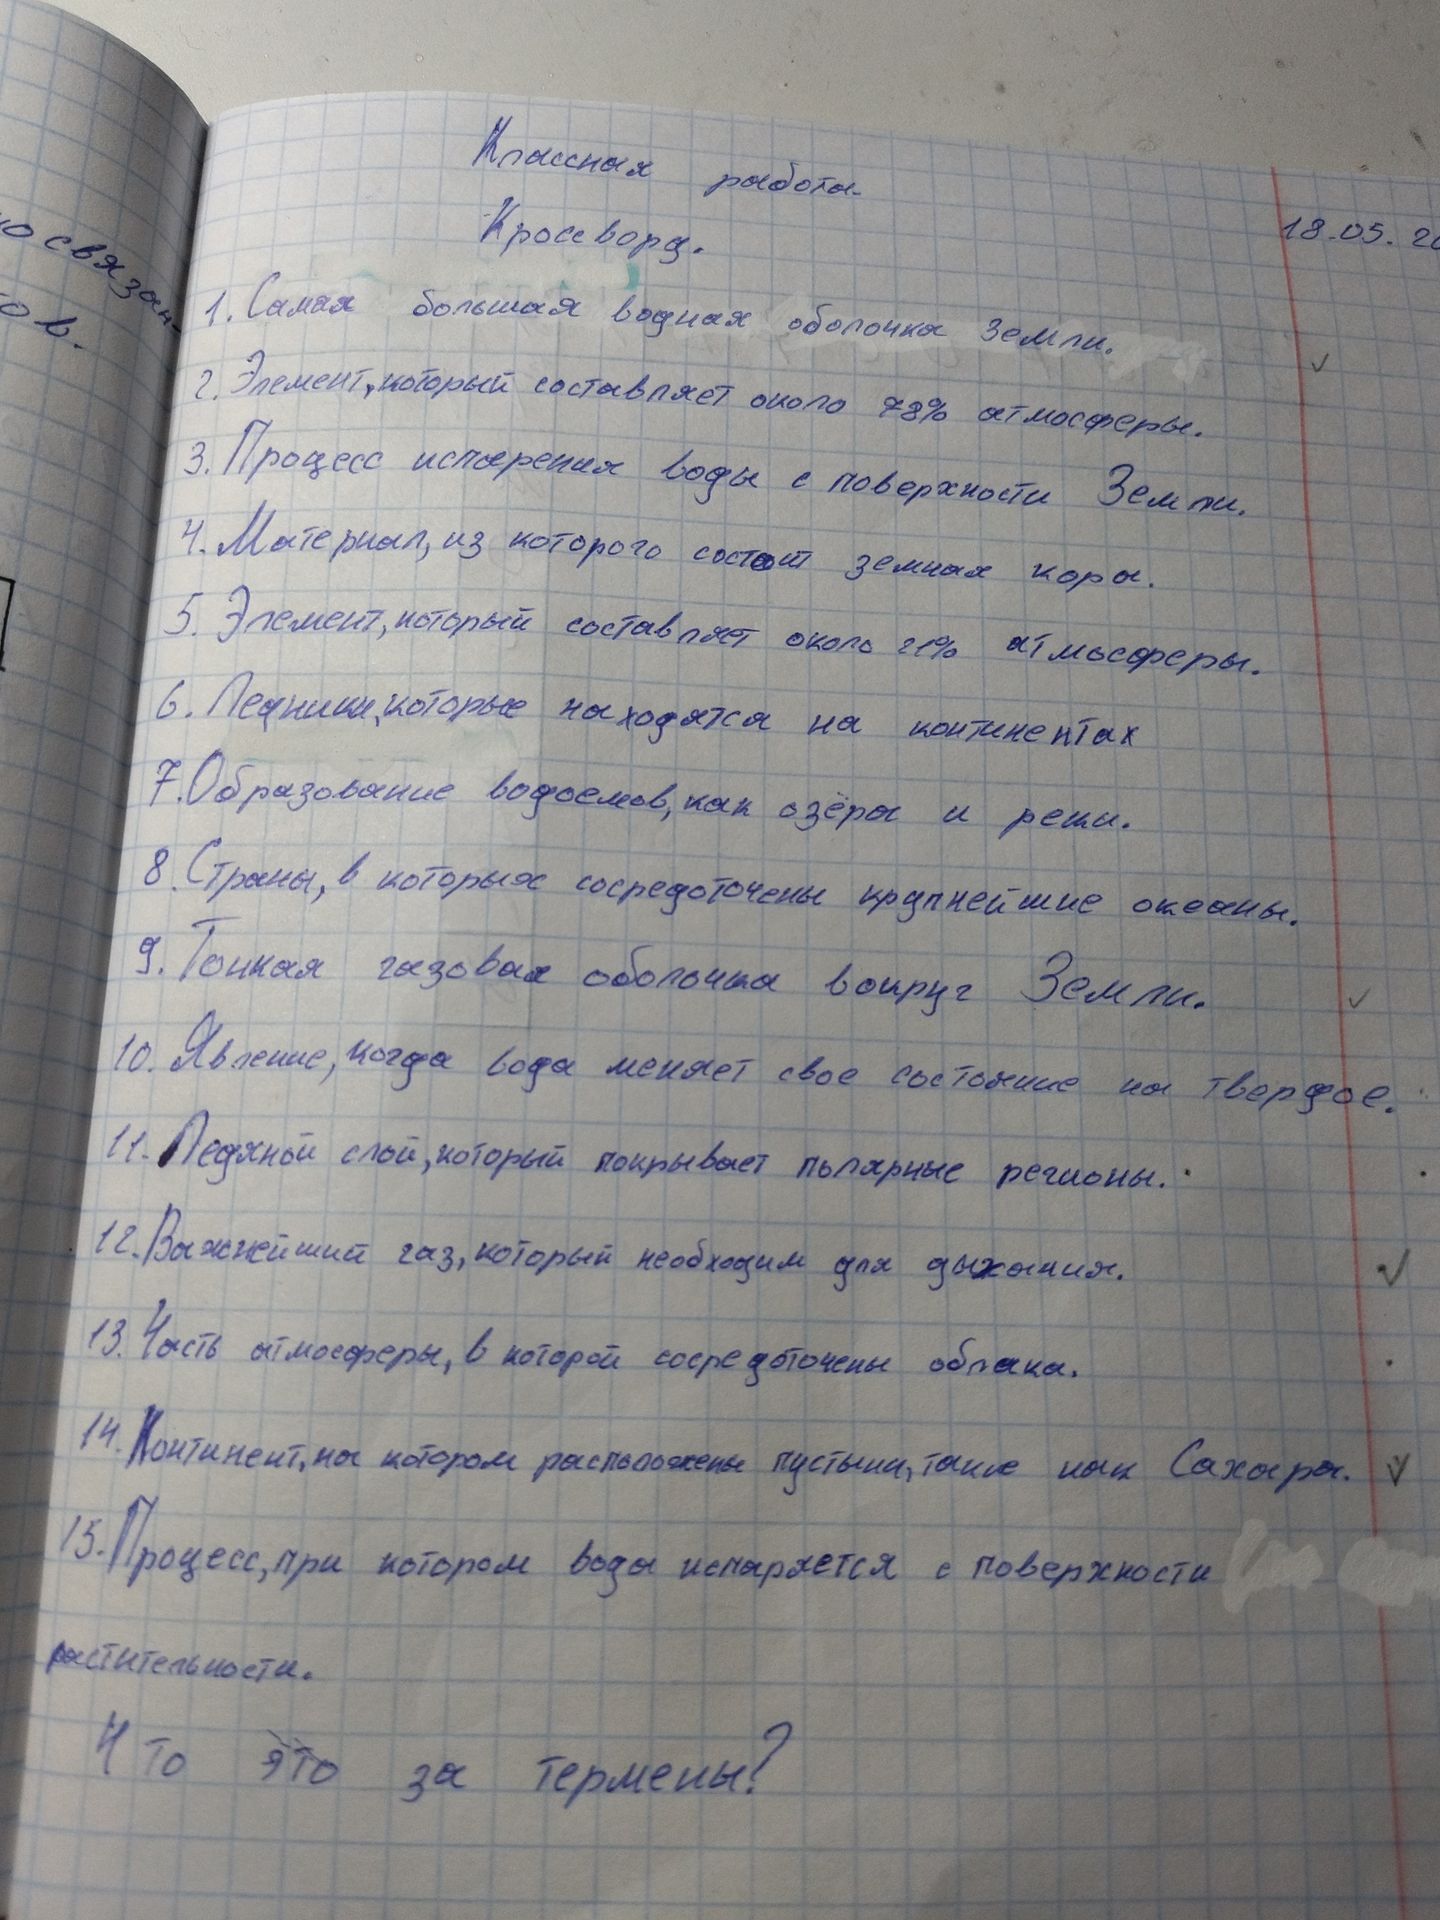 Классная работа
Кроссворд.
18.05.20
но связан-
ов.
1. Самая большая водная оболочка Земли.
2. Элемент, который составляет около 78% атмосферы.
3. Процесс испарения воды с поверхности Земли.
4. Материал, из которого состоит земная кора.
5. Элемент, который составляет около 21% атмосферы.
6. Ледники, которые находятся на континентах
7. Образование водоемов, как озёра и реки.
8. Страны, в которых сосредоточены крупнейшие океаны.
9. Тонкая газовая оболочка вокруг Земли.
10. Явление, когда вода меняет свое состояние на твердое.
11. Ледяной слой, который покрывает полярные регионы.
12. Важнейший газ, который необходим для дыхания.
13. Часть атмосферы, в которой сосредоточены облака.
14. Континент, на котором расположены пустыни, такие как Сахара.
15. Процесс, при котором вода испаряется с поверхности
растительности.
Что это за термены?